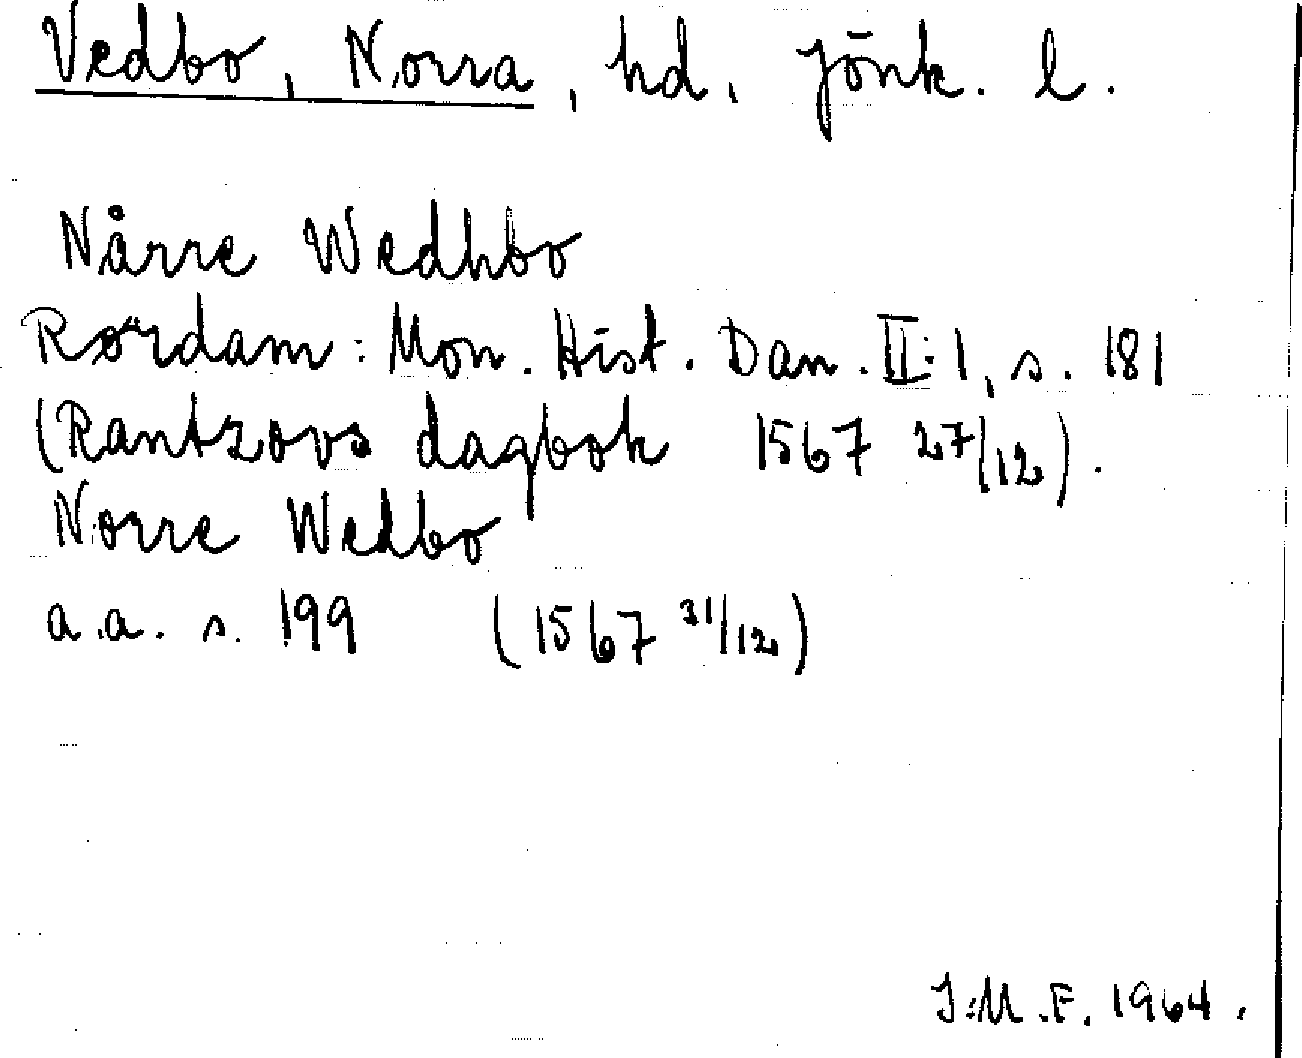 Vedbo, Norra, hd. Jönk. l.
Nårre Wedhbo
Rørdam: Mon. Hist. Dan. II:1, s. 181
(Rantzovs dagbok 1567 27/12).
Norre Wedbo
a.a. s. 199 (1567 31/12)
I:M.F. 1964.